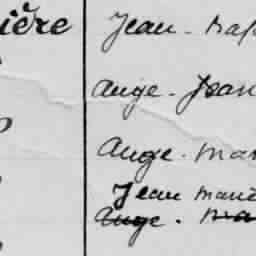 ière Jean - Nap
Ange - Jean
Ange - Mar
Jean Mari
Ange - Ma